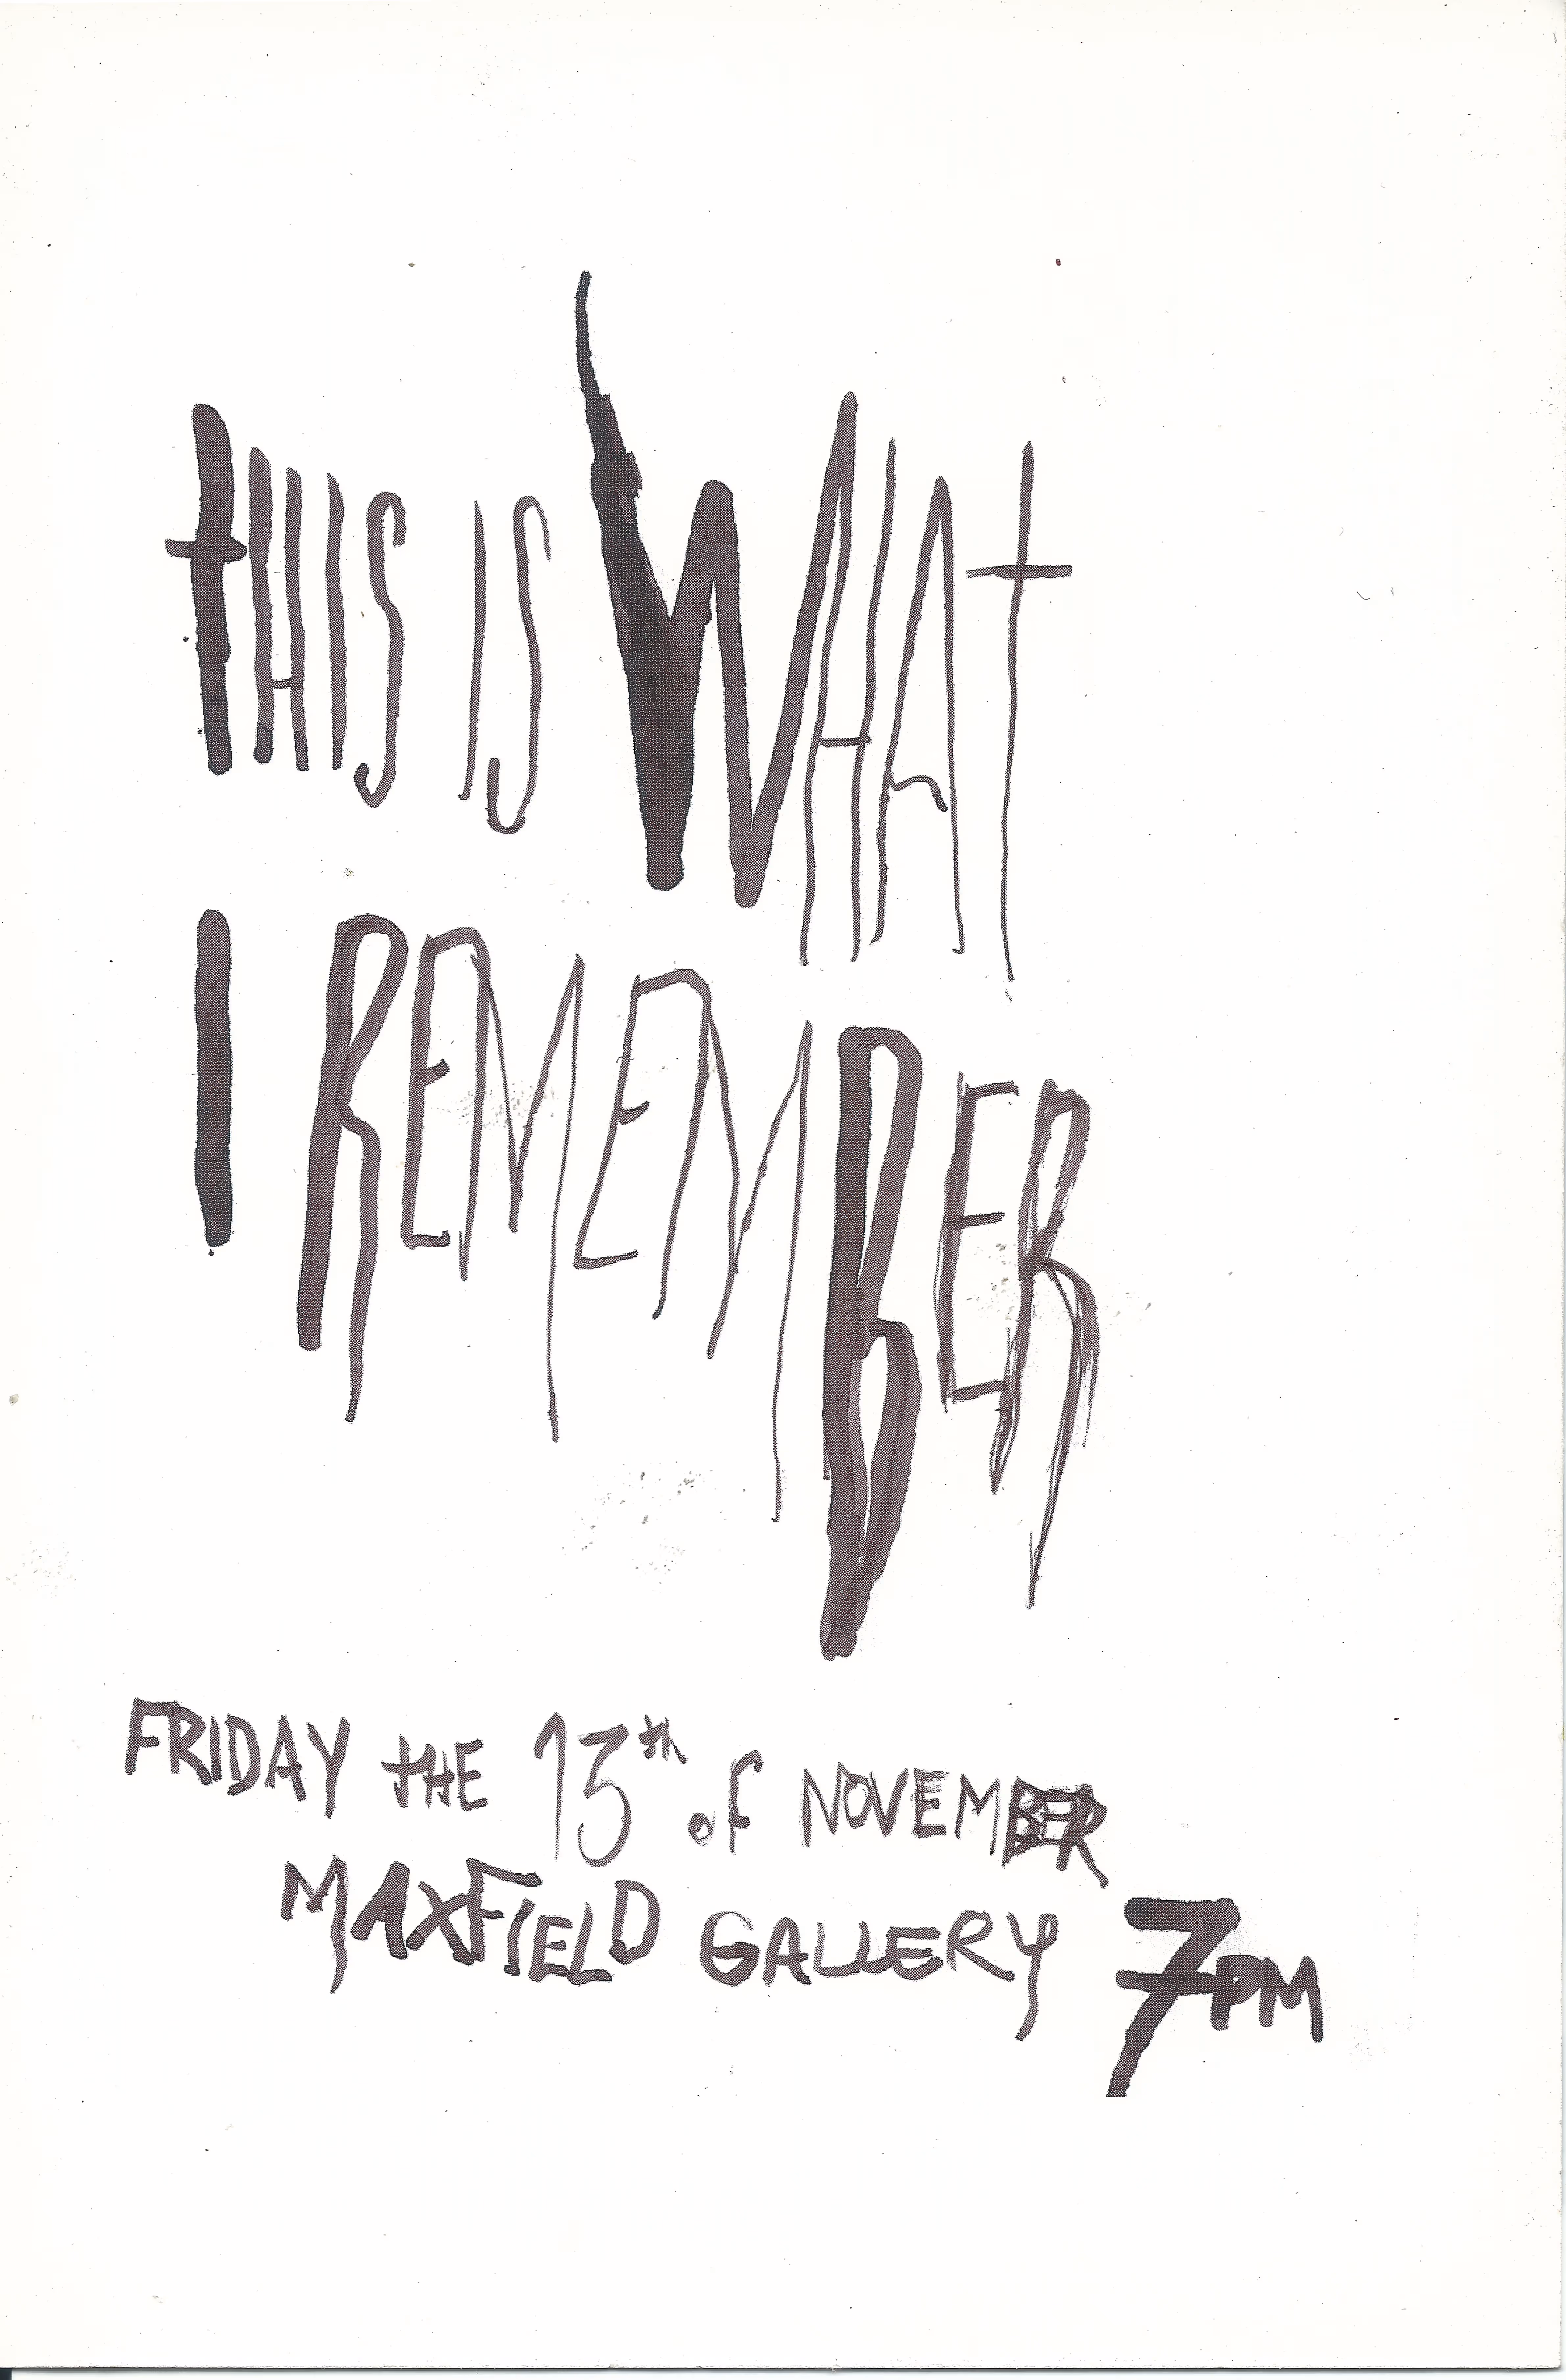 tHIS IS WHAT
I REMEMBER
FRIDAY tHE 13th of NOVEMBER
MAXFIELD GALLERY 7PM